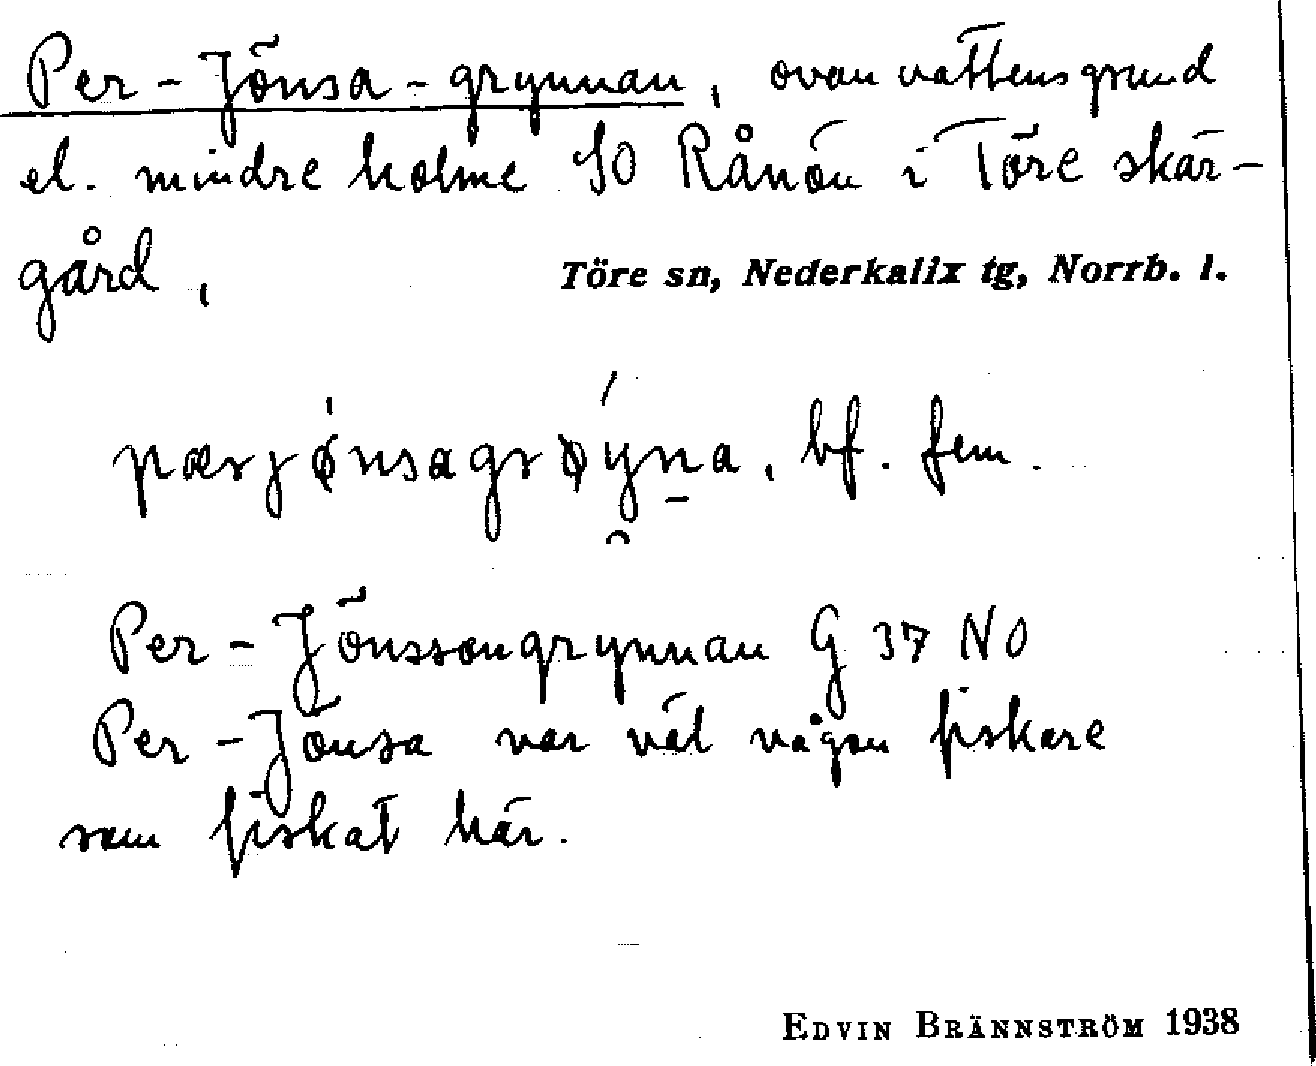 Per-Jönsa-grynnan, ovanvattensgrund
el. mindre holme SO Rånön i Töre skär-
gård,
Töre sn, Nederkalix tg, Norrb. l.
pærjønsagrøyna, bf. fem.
Per-Jönssongrynnan G 37 NO
Per-Jönsa var väl någon fiskare
som fiskat här.
EDVIN BRÄNNSTRÖM 1938